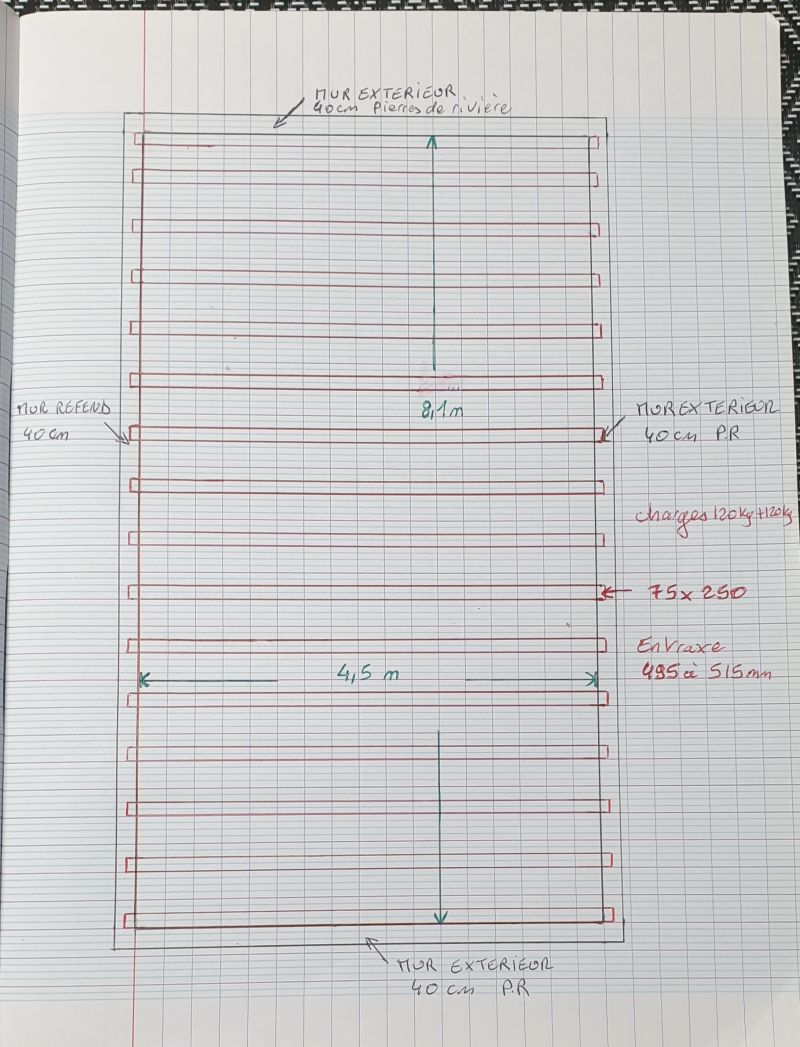 MUR EXTERIEUR
40cm Pierres de rivière
8,1m
MUR REFEND
40cm
MUR EXTERIEUR
40cm P.R
charges 120kg+120kg
75x250
Entraxe
495 à 515mm
4,5 m
MUR EXTERIEUR
40cm P.R